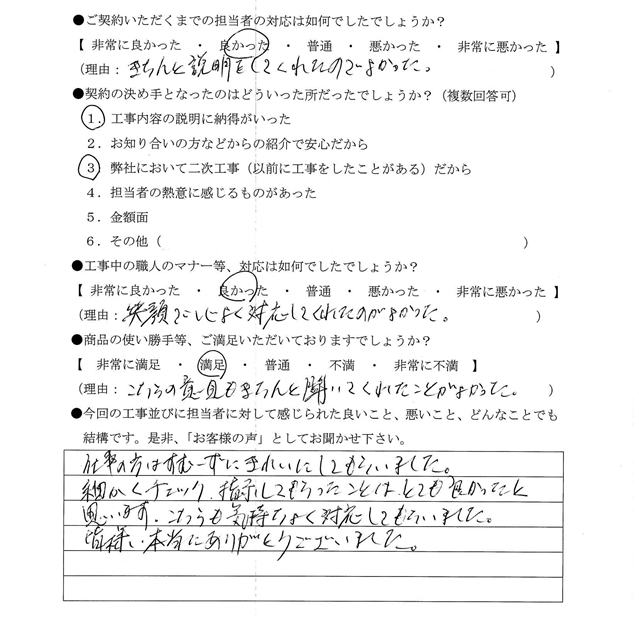 ●ご契約いただくまでの担当者の対応は如何でしたでしょうか？
【 非常に良かった ・ 良かった ・ 普通 ・ 悪かった ・ 非常に悪かった 】
（理由：きちんと説明をしてくれたのでよかった。 ）
●契約の決め手となったのはどういった所だったでしょうか？（複数回答可）
１．工事内容の説明に納得がいった
２．お知り合いの方などからの紹介で安心だから
３．弊社において二次工事（以前に工事をしたことがある）だから
４．担当者の熱意に感じるものがあった
５．金額面
６．その他（ ）
●工事中の職人のマナー等、対応は如何でしたでしょうか？
【 非常に良かった ・ 良かった ・ 普通 ・ 悪かった ・ 非常に悪かった 】
（理由：笑顔で心よく対応してくれたのがよかった。 ）
●商品の使い勝手等、ご満足いただいておりますでしょうか？
【 非常に満足 ・ 満足 ・ 普通 ・ 不満 ・ 非常に不満 】
（理由：こちらの意見もきちんと聞いてくれたことがよかった。 ）
●今回の工事並びに担当者に対して感じられた良いこと、悪いこと、どんなことでも
結構です。是非、「お客様の声」としてお聞かせ下さい。
仕事の方はすむーずにきれいにしてもらいました。
細かくチェック、指示してもらったことは、とても良かったと
思います。こちらも気持ちよく対応してもらいました。
皆様、本当にありがとうございました。